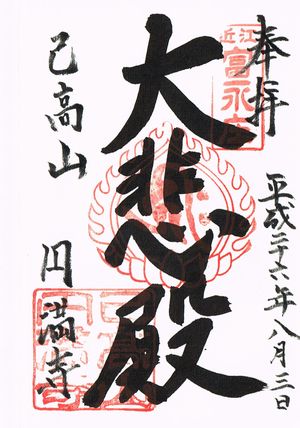 奉拝
平成二十六年八月三日
近江
富永庄
大悲殿
己高山 円満寺